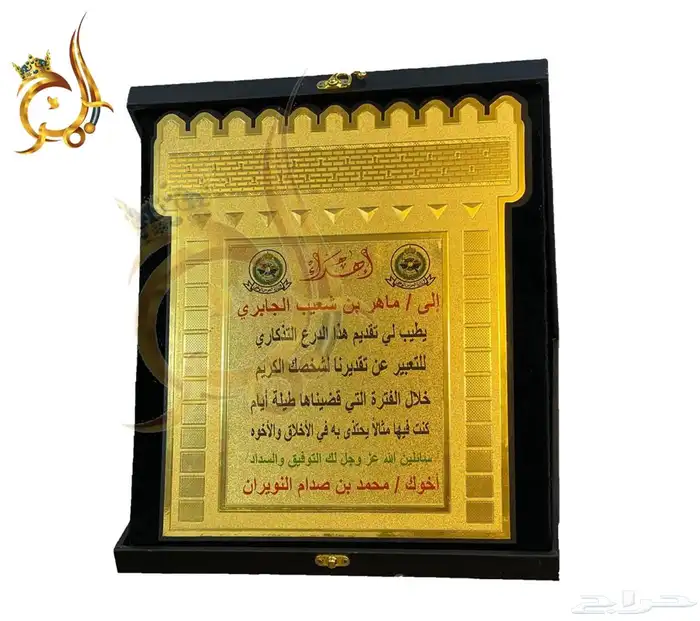 إهداء
إلى / ماهر بن شعيب الجابري
يطيب لي تقديم هذا الدرع التذكاري
للتعبير عن تقديرنا لشخصك الكريم
خلال الفترة التي قضيناها طيلة أيام
كنت فيها مثالاً يحتذى به في الأخلاق والأخوه
سائلين الله عز وجل لك التوفيق والسداد
أخوك / محمد بن صدام النويران
حراج